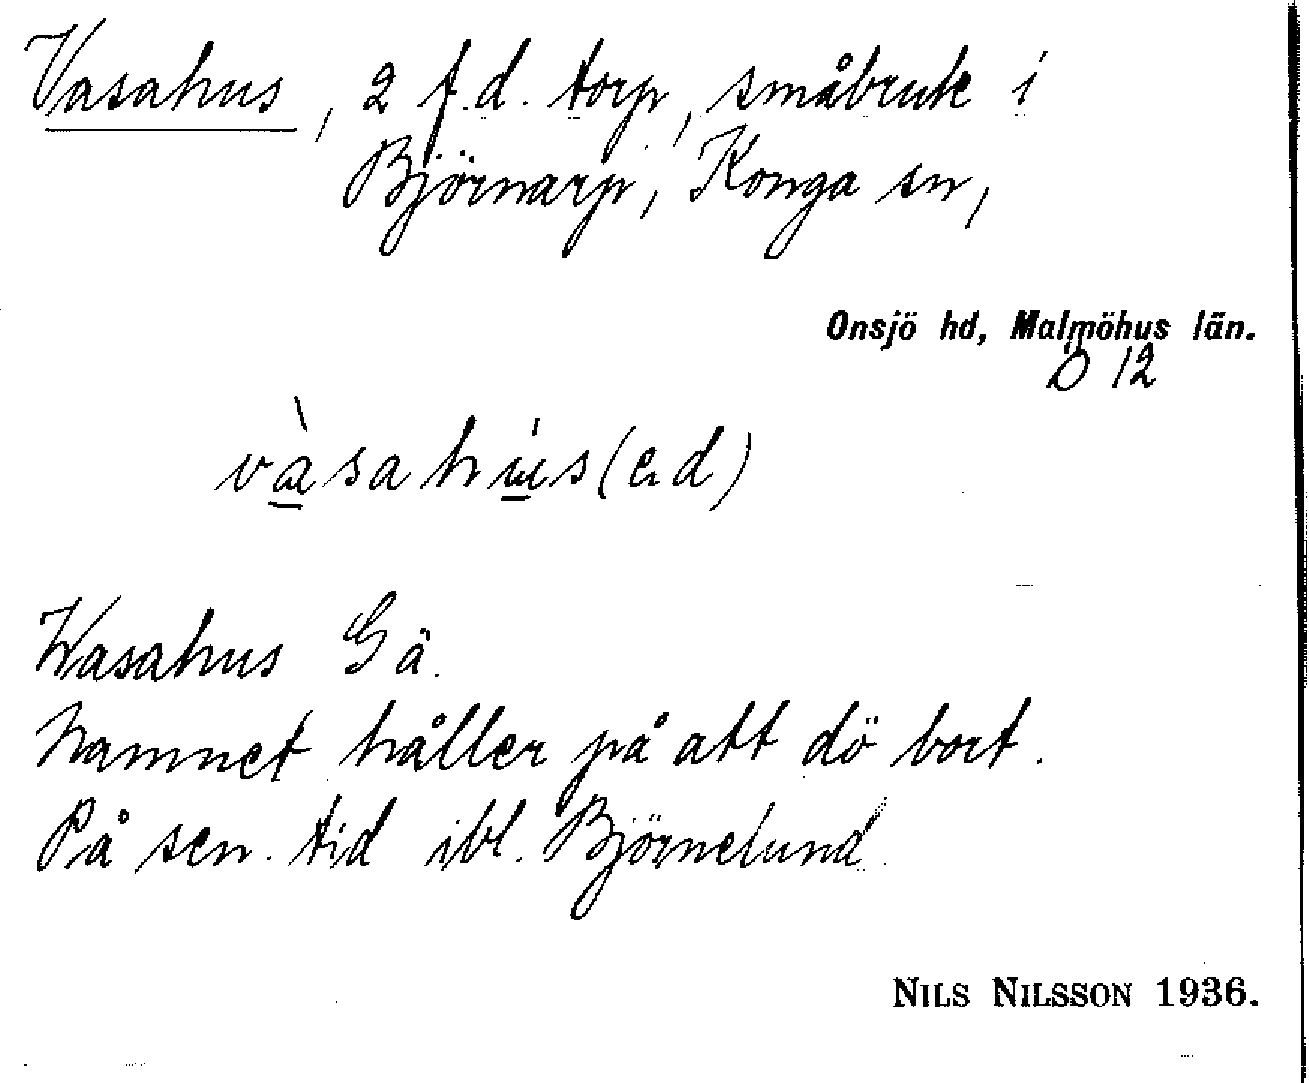 Vasahus, 2 f.d. torp, småbruk i
Björnarp, Konga sn,
Onsjö hd, Malmöhus län.
Ö 12
và̱sahú̱s(ed)
Wasahus Gä.
Namnet håller på att dö bort.
På sen. tid ibl. Björnelund.
NILS NILSSON 1936.